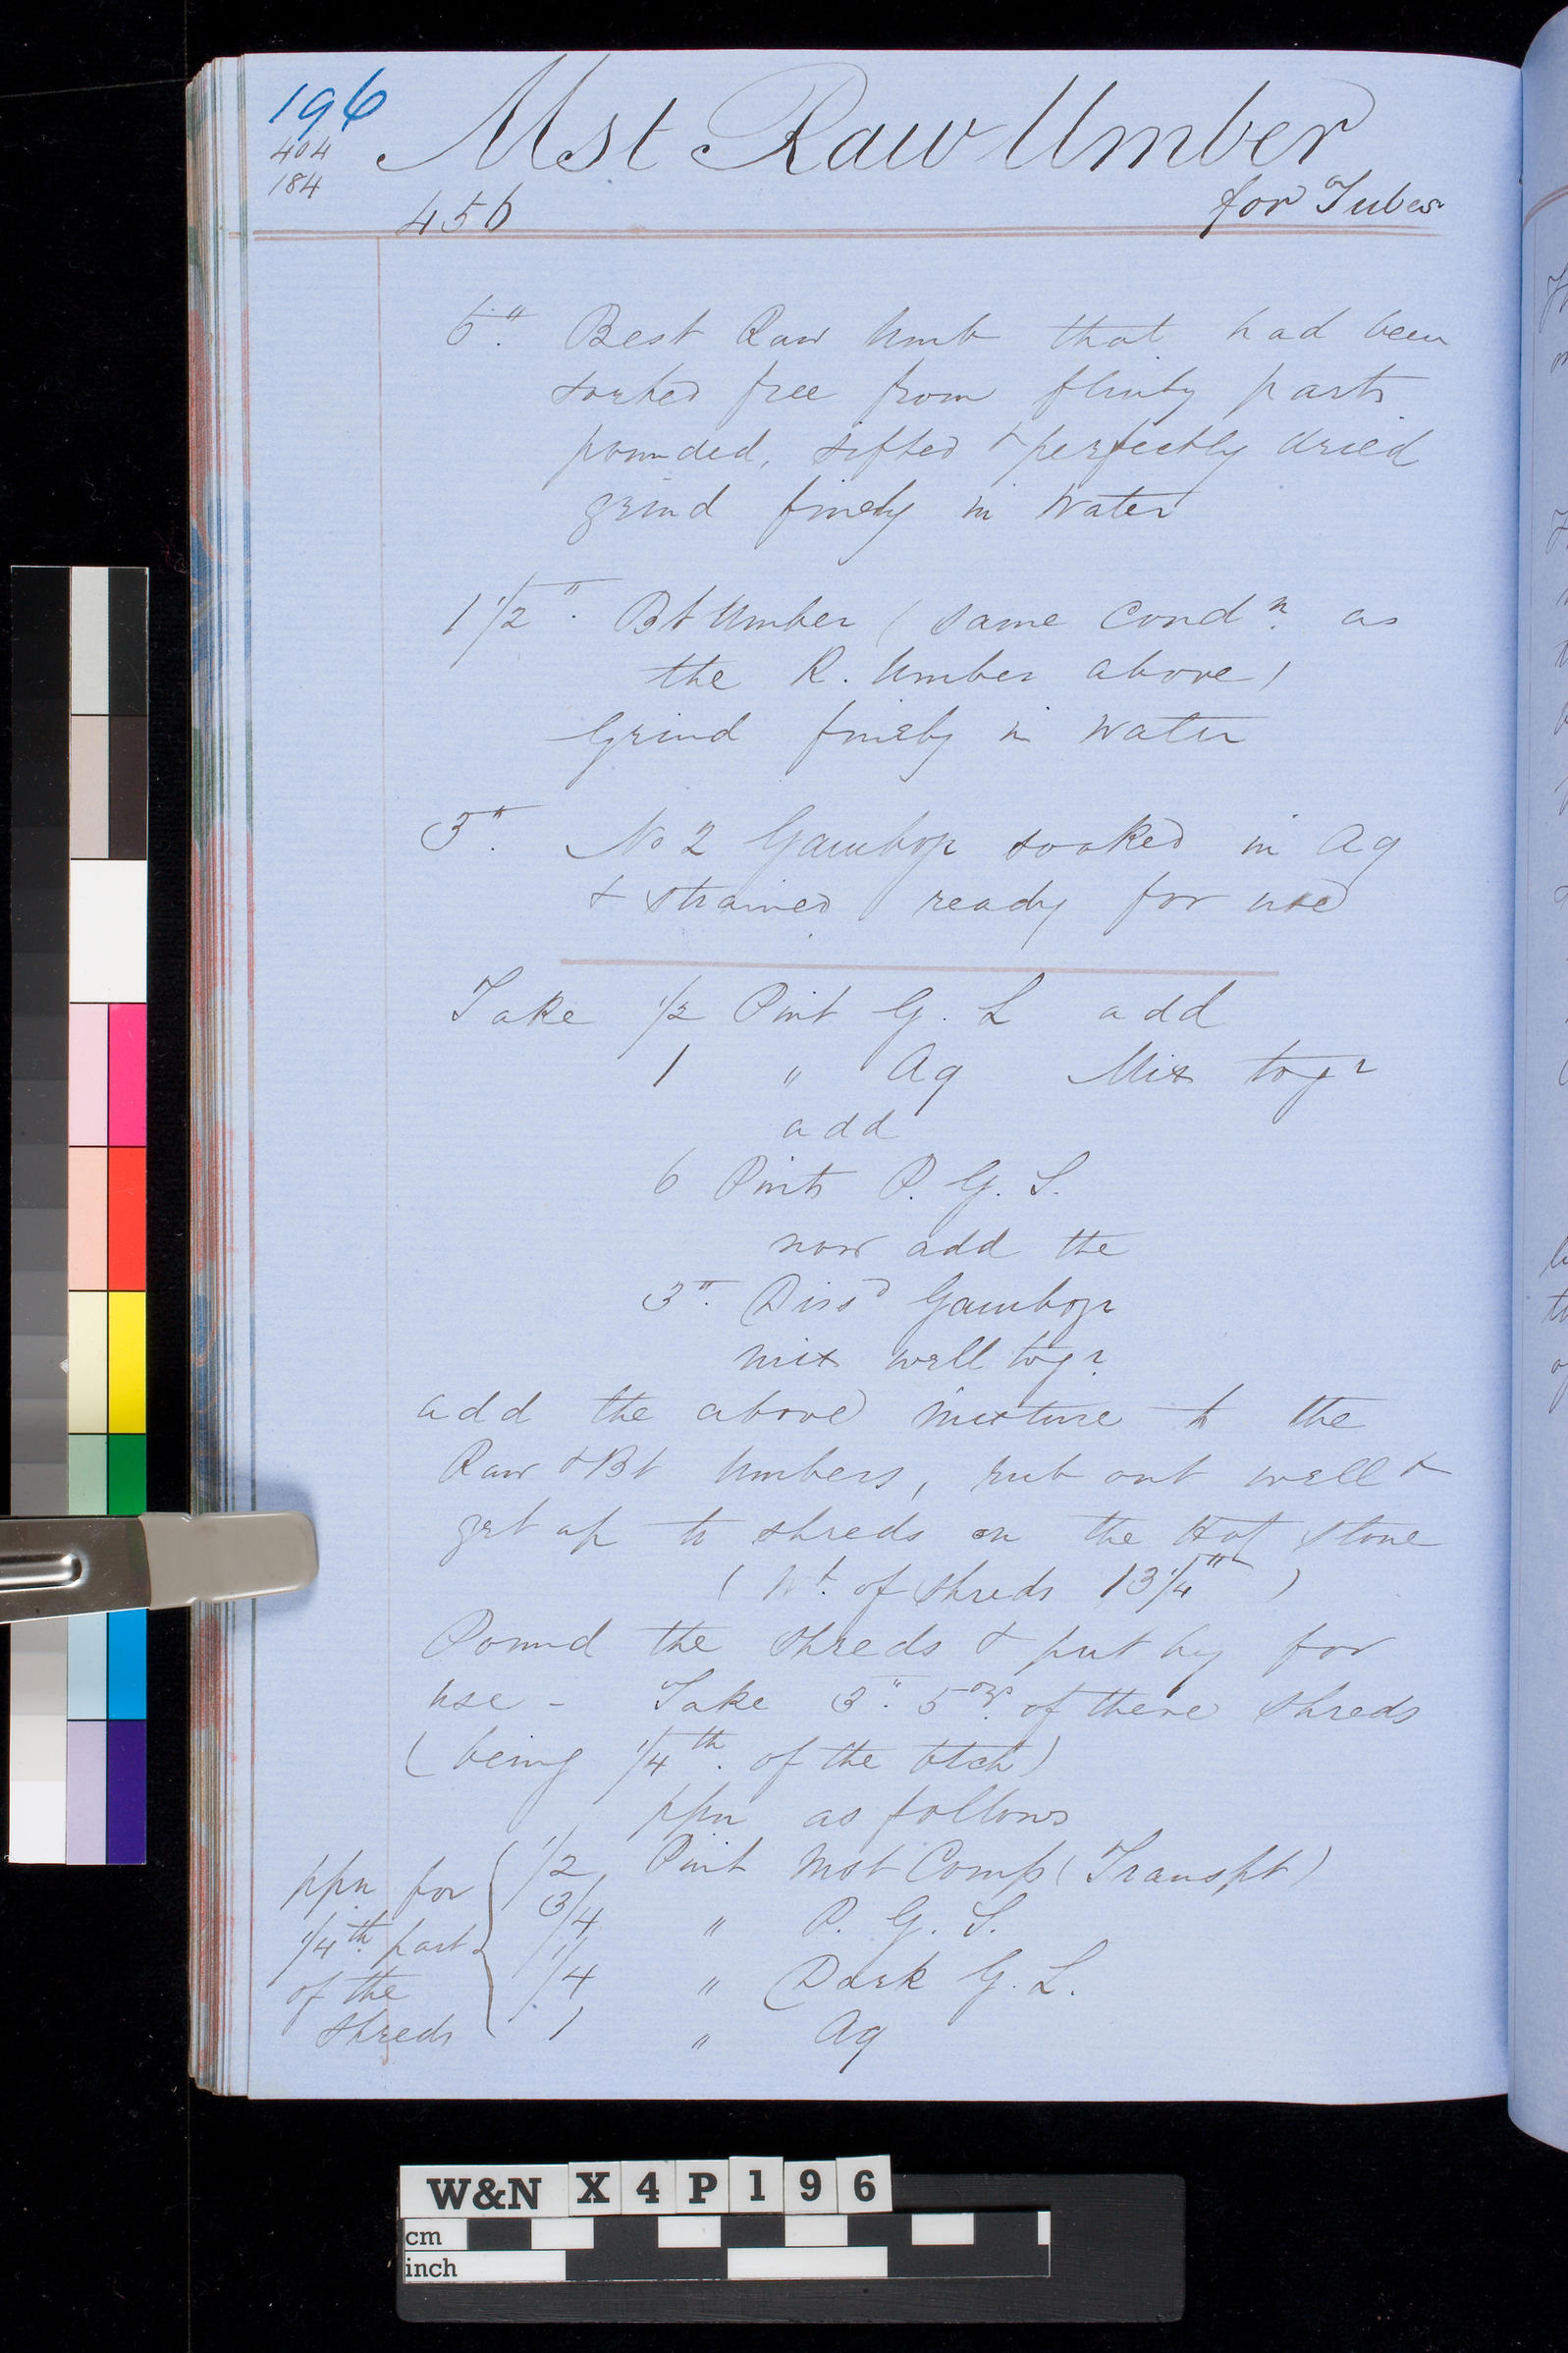 196
404
184
Mst Raw Umber
456
for Tubes
6". Best Raw Umb that had been
sorted free from flinty parts
pounded, sifted & perfectly dried
grind finely in Water
1 1/2". Bt Umber (Same Condn. as
the R. Umber above)
Grind finely in Water
3". No 2 Gambog soaked in Aq
& strained ready for use
Take 1/2 Pint G. L add
1 " Aq Mix togr
add
6 Pints P. G. S.
now add the
3". Dissd Gambog
mix well togr.
add the above mixture to the
Raw & Bt Umbers, rub out well &
get up to shreds on the Hot Stone
(Wt. of shreds 13 1/4")
Pound the shreds & put by for
use - Take 3". 5ozs. of these shreds
(being 1/4th. of the btch)
ppn as follows
ppn for
1/4th. part
of the
shreds
1/2 Pint Mst Comp (Transpt)
3/4 " P. G. S.
1/4 " Dark G. L.
1 " Aq
W&N X4P196
cm
inch